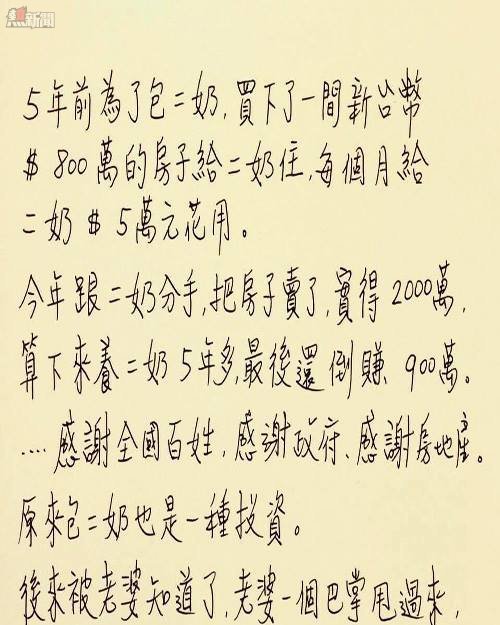 焦新聞
5年前為了包二奶,買下了一間新台幣
$ 800萬的房子給二奶住,每個月給
二奶 $ 5萬元花用。
今年跟二奶分手,把房子賣了,實得 2000萬,
算下來養二奶5年多,最後還倒賺 900萬。
....感謝全國百姓,感謝政府、感謝房地產。
原來包二奶也是一種投資。
後來被老婆知道了,老婆一個巴掌甩過來,